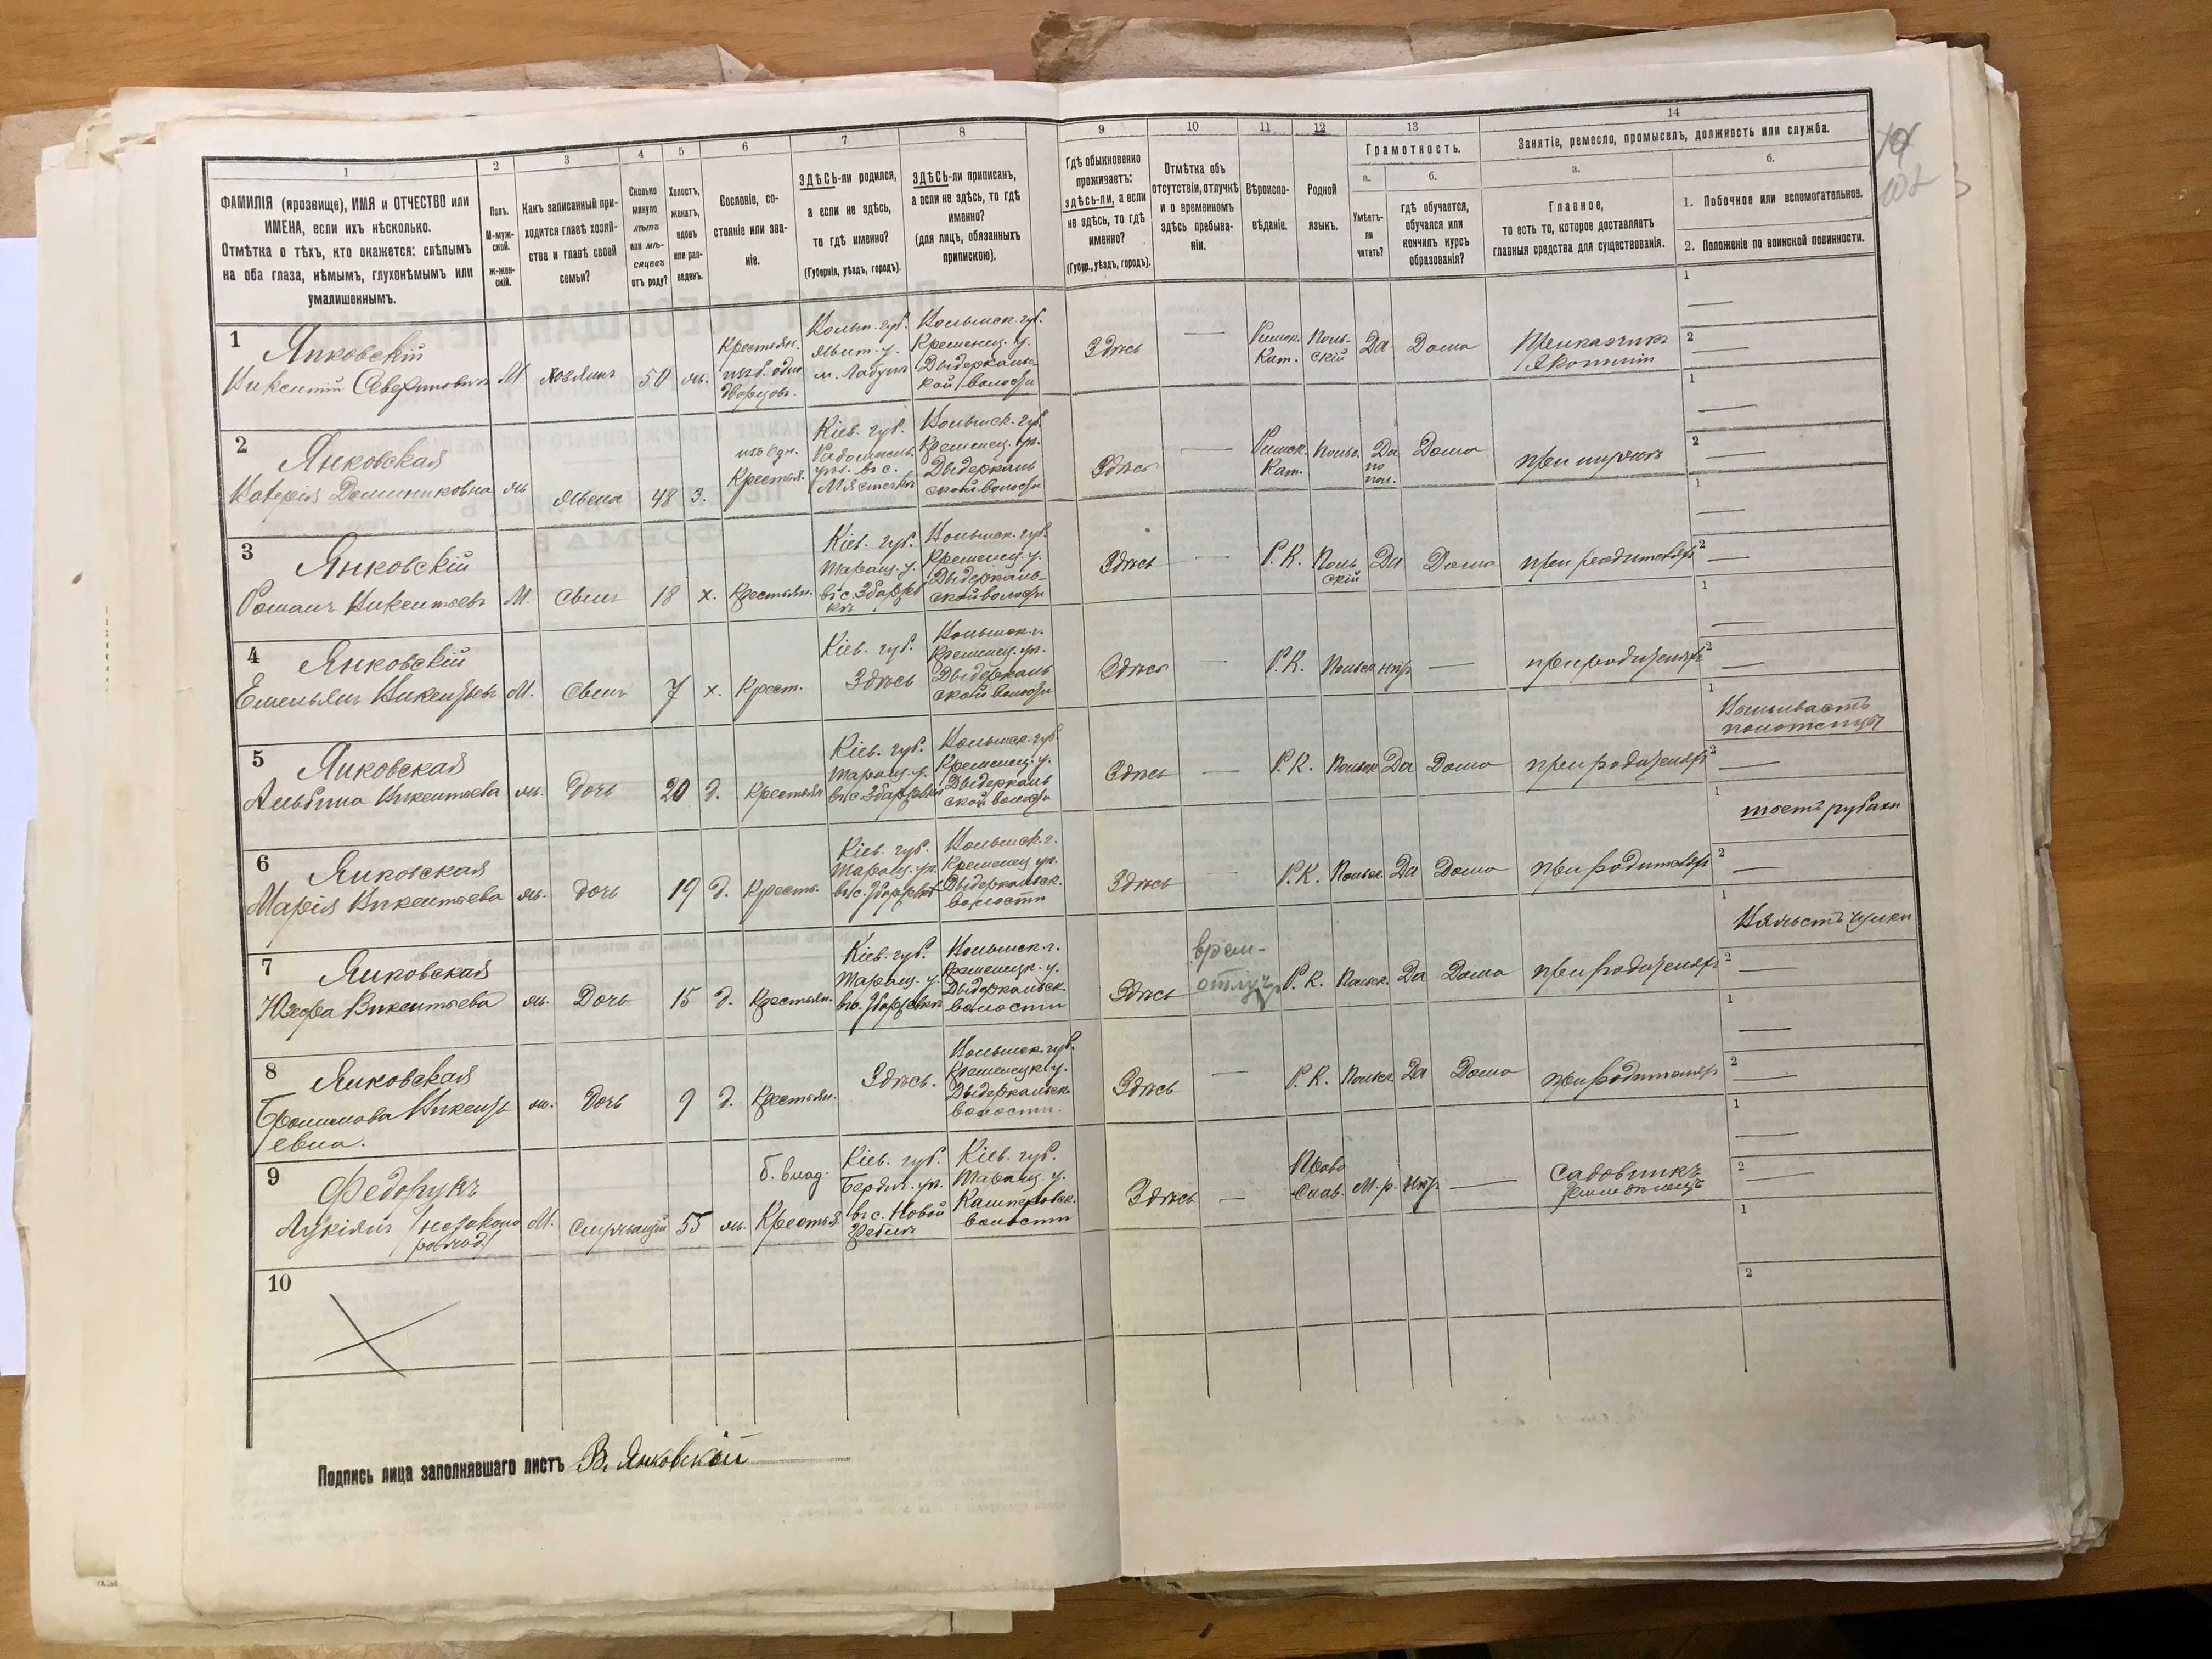 1
ФАМИЛІЯ (прозвище), ИМЯ и ОТЧЕСТВО или
ИМЕНА, если ихъ нѣсколько.
Отмѣтка о тѣхъ, кто окажется: слѣпымъ
на оба глаза, нѣмымъ, глухонѣмымъ или
умалишеннымъ.
2
Полъ.
М-муж-
ской.
ж-жен-
скій.
3
Какъ записанный при-
ходится главѣ хозяй-
ства и главѣ своей
семьи?
4
Сколько
минуло
лѣтъ
или мѣ-
сяцевъ
отъ роду?
5
Холостъ,
женатъ,
вдовъ
или раз-
веденъ.
6
Сословіе, со-
стояніе или зва-
ніе.
7
ЗДѢСЬ-ли родился,
а если не здѣсь,
то гдѣ именно?
(Губернія, уѣздъ, городъ).
8
ЗДѢСЬ-ли приписанъ,
а если не здѣсь, то гдѣ
именно?
(для лицъ, обязанныхъ
припискою).
9
Гдѣ обыкновенно
проживаетъ:
здѣсь-ли, а если
не здѣсь, то гдѣ
именно?
(Губер., уѣздъ, городъ).
10
Отмѣтка объ
отсутствіи, отлучкѣ
и о временномъ
здѣсь пребыва-
ніи.
11
Вѣроиспо-
вѣданіе.
12
Родной
языкъ.
13
Грамотность.
а.
Умѣетъ-
ли
читать?
б.
гдѣ обучается,
обучался или
кончилъ курсъ
образованія?
14
Занятіе, ремесло, промыселъ, должность или служба.
а.
Главное,
то есть то, которое доставляетъ
главныя средства для существованія.
б.
1. Побочное или вспомогательное.
2. Положеніе по воинской повинности.
1
Янковскій
Викентій Севериновичъ
М.
хозяинъ
50
ж.
Крестьян.
изъ одно
дворцевъ.
Волын. губ.
Жит. у.
м. Лабунъ
Волынск. губ.
Кременец. у.
Дыдеркаль-
кой волости
Здѣсь
Римск.
Кат.
Поль-
скій
Да
Дома
Прикащикъ
Экономіи
2
Янковская
Валерія Доминиковна
ж
Жена
48
З.
изъ Одн.
Крестья.
Кіев. губ.
Радомысль.
уѣз. въ с.
Волынск. губ.
Кременец. ую.
Дыдеркаль
ской волости
Здѣсь
Римск.
Кат.
Польс.
Да
по
пол.
Дома
при мужѣ
3
Янковскій
Романъ Викентьевъ
М.
Сынъ
18
х.
Крестьян.
Кіев. губ.
Таращ. у.
въ с. Збаржев
кѣ
Волынск. губ.
Кременец. у.
Дыдеркаль-
ской волости
Здѣсь
Р. К.
Поль
скій
Да
Дома
при родителяхъ
4
Янковскій
Емельянъ Викентьевъ
М.
Сынъ
7
х.
Крест.
Кіев. губ.
Здѣсь
Волынск. г.
Кременец. ую.
Дыдеркаль
ской волости
Здѣсь
Р. К.
Польск
нѣтъ
при родителяхъ
5
Янковская
Альбина Викентьева
ж.
Дочь
20
д.
Крестьян
Кіев. губ.
Таращ. у.
въ с. Збаржевкѣ
Волынск. губ.
Кременец. у.
Дыдеркаль
ской волости
Здѣсь
Р. К.
Польск
Да
Дома
при родителяхъ
Вышиваетъ
полотенцы
6
Янковская
Марія Викентьева
ж.
дочь
19
д.
Кресть.
Кіев. губ.
Таращ. ую.
въ с. Збаржевкѣ
Волынск. г.
Кременец. ую.
Дыдеркальск.
волости
Здѣсь
Р. К.
Польск.
Да
Дома
при родителяхъ
шьетъ рубахи
7
Янковская
Юзефа Викентьева
ж.
Дочь
15
д.
Крестьян.
Кіев. губ.
Таращ. у.
въ с. Збаржевкѣ
Волынск. г.
Кременецк. у.
Дыдеркальск.
волости
Здѣсь
врем-
отлуч
Р. К.
Польск.
Да
Дома
при родителяхъ
Вяжетъ чулки
8
Янковская
Бронислава Викенть
евна.
ж.
дочь
9
д.
Крестьян.
Здѣсь.
Волынск. губ.
Кременецк у.
Дыдеркальск
волости.
Здѣсь
Р. К.
Польск.
Да
Дома
при родителяхъ
9
Федорукъ
Лукіянъ (незаконо
рожд.)
М.
Служащій
55
ж.
б. влад.
Крестья.
Кіев. губ.
Бердич. ую.
въ с. Новой
Гребли
Кіев. губ.
Таращ. у.
Кашперовск.
волости
Здѣсь
Право
Слав.
М. р.
нѣтъ
Садовникъ
10
Подпись лица заполнявшаго листъ В. Янковскій